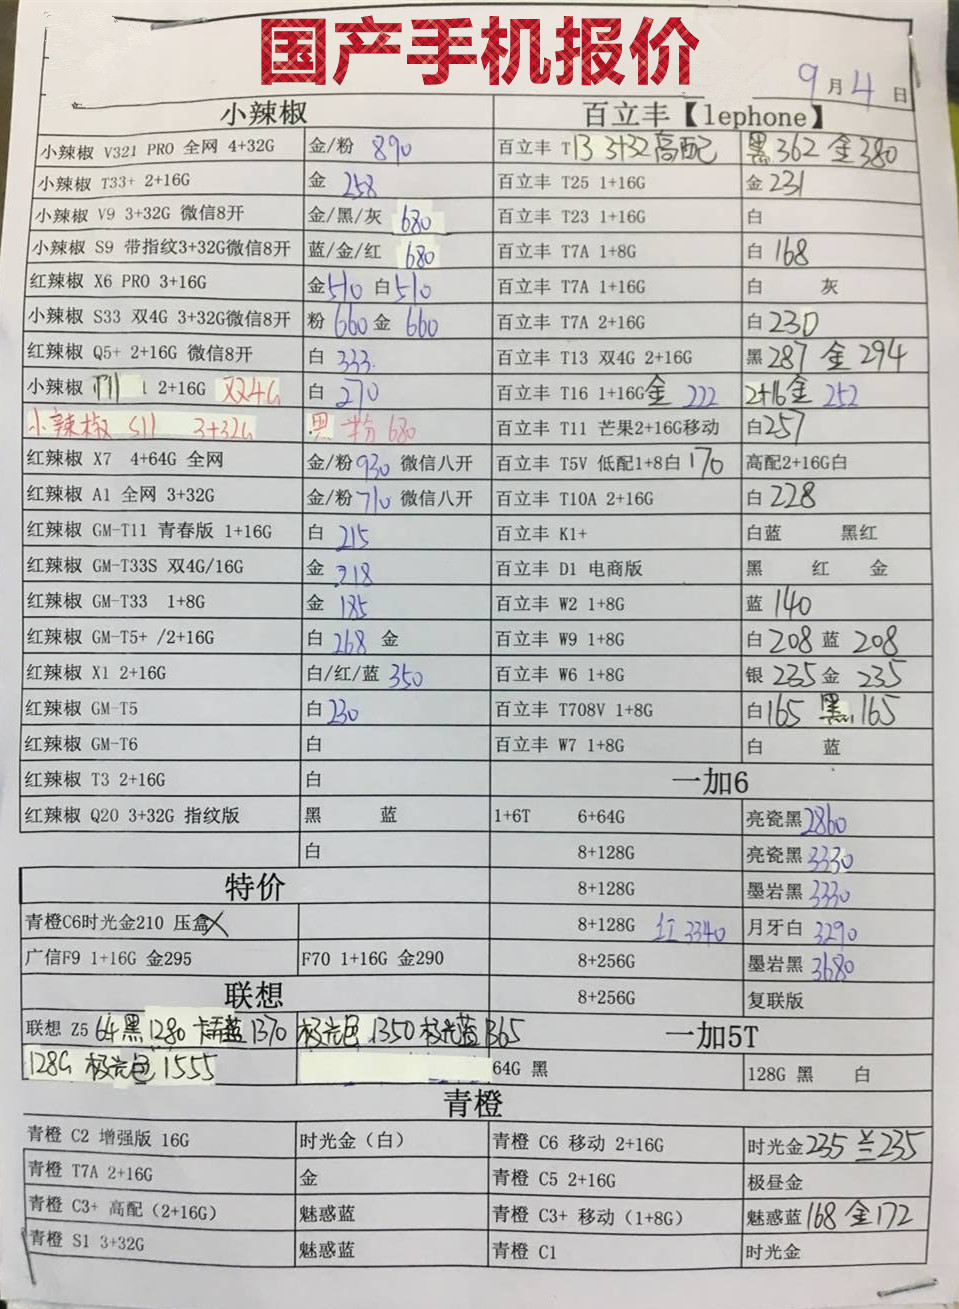 国产手机报价
9月4日
小辣椒
小辣椒 V321 PRO 全网 4+32G 金/粉 890
小辣椒 T33+ 2+16G 金 258
小辣椒 V9 3+32G 微信8开 金/黑/灰 680
小辣椒 S9 带指纹3+32G微信8开 蓝/金/红 680
红辣椒 X6 PRO 3+16G 金510 白510
小辣椒 S33 双4G 3+32G微信8开 粉 660 金 660
红辣椒 Q5+ 2+16G 微信8开 白 333
小辣椒 T11 2+16G 双4G 白 270
小辣椒 S11 3+32G 黑 粉 680
红辣椒 X7 4+64G 全网 金/粉 930 微信八开
红辣椒 A1 全网 3+32G 金/粉 710 微信八开
红辣椒 GM-T11 青春版 1+16G 白 215
红辣椒 GM-T33S 双4G/16G 金 218
红辣椒 GM-T33 1+8G 金 185
红辣椒 GM-T5+ /2+16G 白 268 金
红辣椒 X1 2+16G 白/红/蓝 350
红辣椒 GM-T5 白 230
红辣椒 GM-T6 白
红辣椒 T3 2+16G 白
红辣椒 Q20 3+32G 指纹版 黑 蓝
白
特价
青橙C6时光金210 压盒
广信F9 1+16G 金295 F70 1+16G 金290
联想
联想 Z5 64黑1280 蓝1370 极光色1350 极光蓝1365
128G 极光色1555
百立丰【lephone】
百立丰 T13 3+32高配 黑362 金380
百立丰 T25 1+16G 金231
百立丰 T23 1+16G 白
百立丰 T7A 1+8G 白 168
百立丰 T7A 1+16G 白 灰
百立丰 T7A 2+16G 白230
百立丰 T13 双4G 2+16G 黑287 金294
百立丰 T16 1+16G金 222 2+16金 252
百立丰 T11 芒果2+16G移动 白257
百立丰 T5V 低配1+8白170 高配2+16G白
百立丰 T10A 2+16G 白 228
百立丰 K1+ 白蓝 黑红
百立丰 D1 电商版 黑 红 金
百立丰 W2 1+8G 蓝 140
百立丰 W9 1+8G 白208 蓝 208
百立丰 W6 1+8G 银 235 金 235
百立丰 T708V 1+8G 白165 黑165
百立丰 W7 1+8G 白 蓝
一加6
1+6T 6+64G 亮瓷黑2860
8+128G 亮瓷黑3330
8+128G 墨岩黑3330
8+128G 红3340 月牙白3290
8+256G 墨岩黑3680
8+256G 复联版
一加5T
64G 黑 128G 黑 白
青橙
青橙 C2 增强版 16G 时光金（白） 青橙 C6 移动 2+16G 时光金235 兰235
青橙 T7A 2+16G 金 青橙 C5 2+16G 极昼金
青橙 C3+ 高配（2+16G） 魅惑蓝 青橙 C3+ 移动（1+8G） 魅惑蓝168 金172
青橙 S1 3+32G 魅惑蓝 青橙 C1 时光金